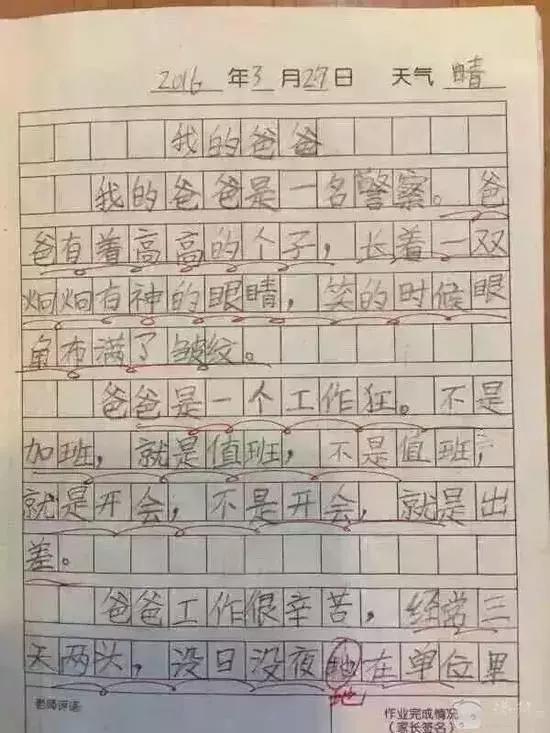 2016年3月27日 天气 晴
我的爸爸
我的爸爸是一名警察。爸
爸有着高高的个子，长着一双
炯炯有神的眼睛，笑的时候眼
角布满了皱纹。
爸爸是一个工作狂。不是
加班，就是值班，不是值班，
就是开会，不是开会，就是出
差。
爸爸工作很辛苦，经常三
天两头，没日没夜地在单位里
地
老师评语
作业完成情况
（家长签名）